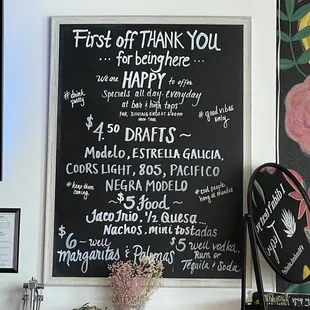 First off THANK YOU
for being here
We are HAPPY to offer
Specials all day everyday
at bar & high tops
#drink
#good vibes
only
$4.50 DRAFTS ~
Modelo, ESTRELLA GALICIA,
COORS LIGHT, 805, PACIFICO
NEGRA MODELO
#keep them
coming
#cool people
~ $5 food
Taco Trio, 1/2 Quesa...
Nachos, mini tostadas
$6 ~ well
margaritas & Palomas
$5 well vodka,
Rum or
Tequila & Soda